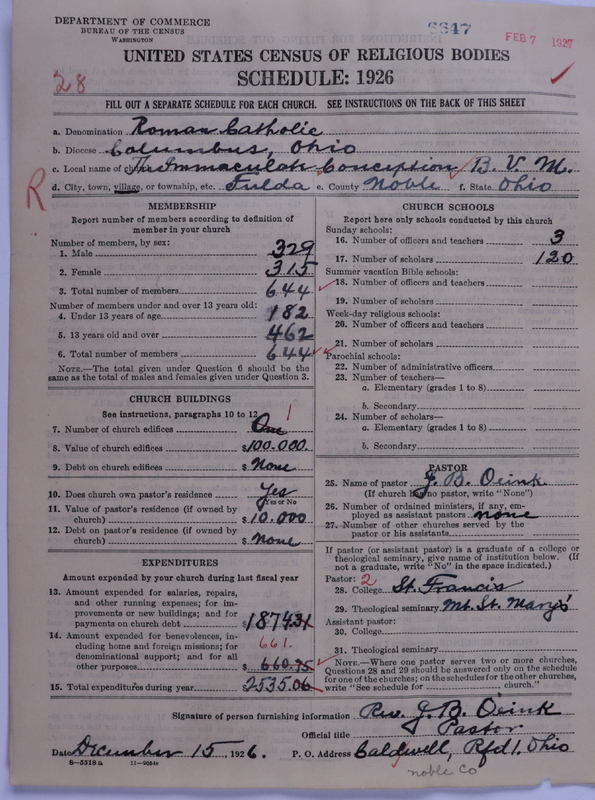 DEPARTMENT OF COMMERCE
BUREAU OF THE CENSUS
WASHINGTON
6647
FEB 7 1927
UNITED STATES CENSUS OF RELIGIOUS BODIES
28
SCHEDULE: 1926
FILL OUT A SEPARATE SCHEDULE FOR EACH CHURCH. SEE INSTRUCTIONS ON THE BACK OF THIS SHEET
a. Denomination Roman Catholic
b. Diocese Columbus, Ohio
c. Local name of church The Immaculate Conception B. V. M.
R
d. City, town, village, or township, etc. Fulda e. County Noble f. State Ohio
MEMBERSHIP
Report number of members according to definition of member in your church
Number of members, by sex:
1. Male 329
2. Female 315
3. Total number of members 644
Number of members under and over 13 years old:
4. Under 13 years of age 182
5. 13 years old and over 462
6. Total number of members 644
NOTE.—The total given under Question 6 should be the
same as the total of males and females given under Question 3.
CHURCH BUILDINGS
See instructions, paragraphs 10 to 12
1
7. Number of church edifices One
8. Value of church edifices $100.000.
9. Debt on church edifices $ None
10. Does church own pastor's residence Yes
Yes or No
11. Value of pastor's residence (if owned by
church) $10.000
12. Debt on pastor's residence (if owned by
church) $ None
EXPENDITURES
Amount expended by your church during last fiscal year
13. Amount expended for salaries, repairs,
and other running expenses; for im-
provements or new buildings; and for
payments on church debt $1874.31
14. Amount expended for benevolences, in-
cluding home and foreign missions; for
denominational support; and for all
other purposes $ 660.75
661.
15. Total expenditures during year 2535.06
CHURCH SCHOOLS
Report here only schools conducted by this church
Sunday schools:
16. Number of officers and teachers 3
17. Number of scholars 120
Summer vacation Bible schools:
18. Number of officers and teachers
19. Number of scholars
Week-day religious schools:
20. Number of officers and teachers
21. Number of scholars
Parochial schools:
22. Number of administrative officers
23. Number of teachers—
a. Elementary (grades 1 to 8)
b. Secondary
24. Number of scholars—
a. Elementary (grades 1 to 8)
b. Secondary
PASTOR
25. Name of pastor J. B. Oeink
(If church has no pastor, write "None")
26. Number of ordained ministers, if any, em-
ployed as assistant pastors none
27. Number of other churches served by the
pastor or his assistants
If pastor (or assistant pastor) is a graduate of a college or
theological seminary, give name of institution below. (If
not a graduate, write "No" in the space indicated.)
Pastor: 2
28. College St. Francis
29. Theological seminary Mt. St. Mary's
Assistant pastor:
30. College
31. Theological seminary
NOTE.—Where one pastor serves two or more churches,
Questions 28 and 29 should be answered only on the schedule
for one of the churches; on the schedules for the other churches,
write "See schedule for church."
Signature of person furnishing information Rev. J. B. Oeink
Official title Pastor
Date December 15, 1926. P. O. Address Caldwell, Rfd 1, Ohio
8—5518a 11—9054a
noble co